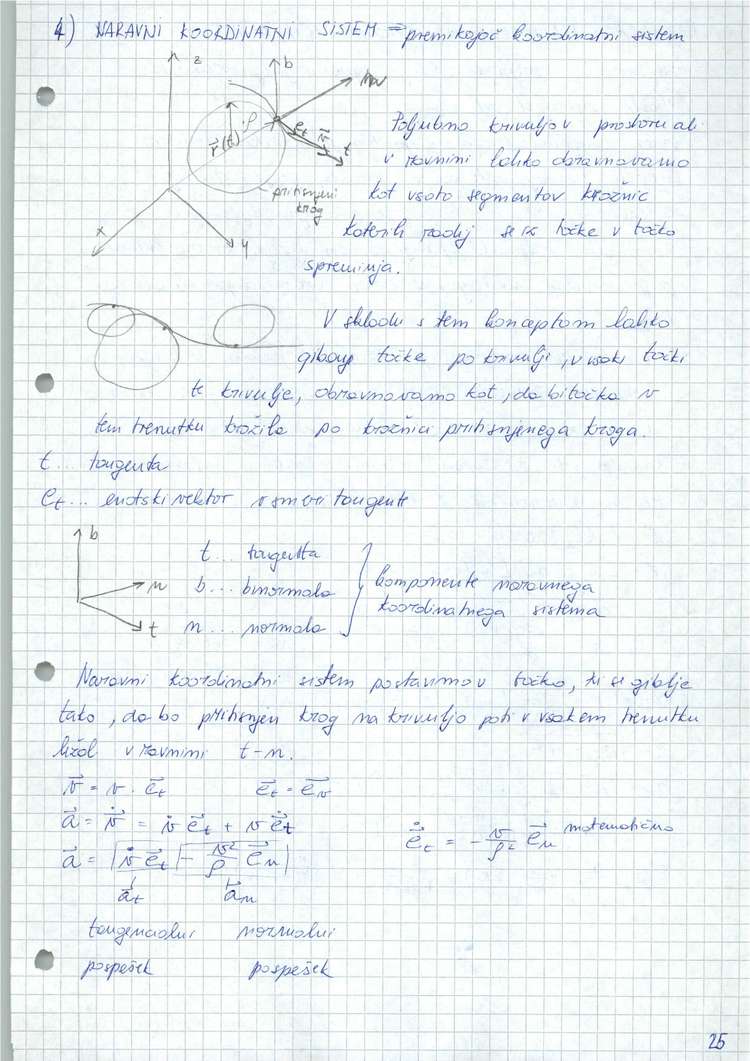 4) NARAVNI KOORDINATNI SISTEM = premikajoč koordinatni sistem
z
b
n
ρ
r⃗(t)
e⃗t
v⃗
t
pritisnjeni
krog
x
y
Poljubno krivuljo v prostoru ali
v ravnini lahko obravnavamo
kot vsoto segmentov krožnic
katerih radij se iz točke v točko
spreminja.
V skladu s tem konceptom lahko
gibanje točke po krivulji, v vsaki točki
te krivulje, obravnavamo kot, da bi točka v
tem trenutku krožila po krožnici pritisnjenega kroga.
t... tangenta
et... enotski vektor v smeri tangente
b
n
t
t... tangenta
b... binormala
n... normala
komponente naravnega
koordinatnega sistema
Naravni koordinatni sistem postavimo v točko, ki se giblje
tako, da bo pritisnjen krog na krivuljo poti v vsakem trenutku
ležal v ravnini t-n.
v⃗ = v · e⃗t e⃗t = e⃗v
a⃗ = v⃗̇ = v̇ e⃗t + v e⃗̇t
e⃗̇t = - v/ρ² e⃗n matematično
a⃗ = v̇ e⃗t - v²/ρ e⃗n
a⃗t a⃗n
tangencialni normalni
pospešek pospešek
25